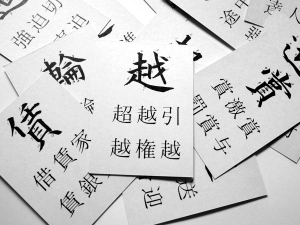 強
迫
切
輪
越
引越
越権
超越
賃
家
賃銀
借賃
賞
賞与
激賞
賞
途
送
迎